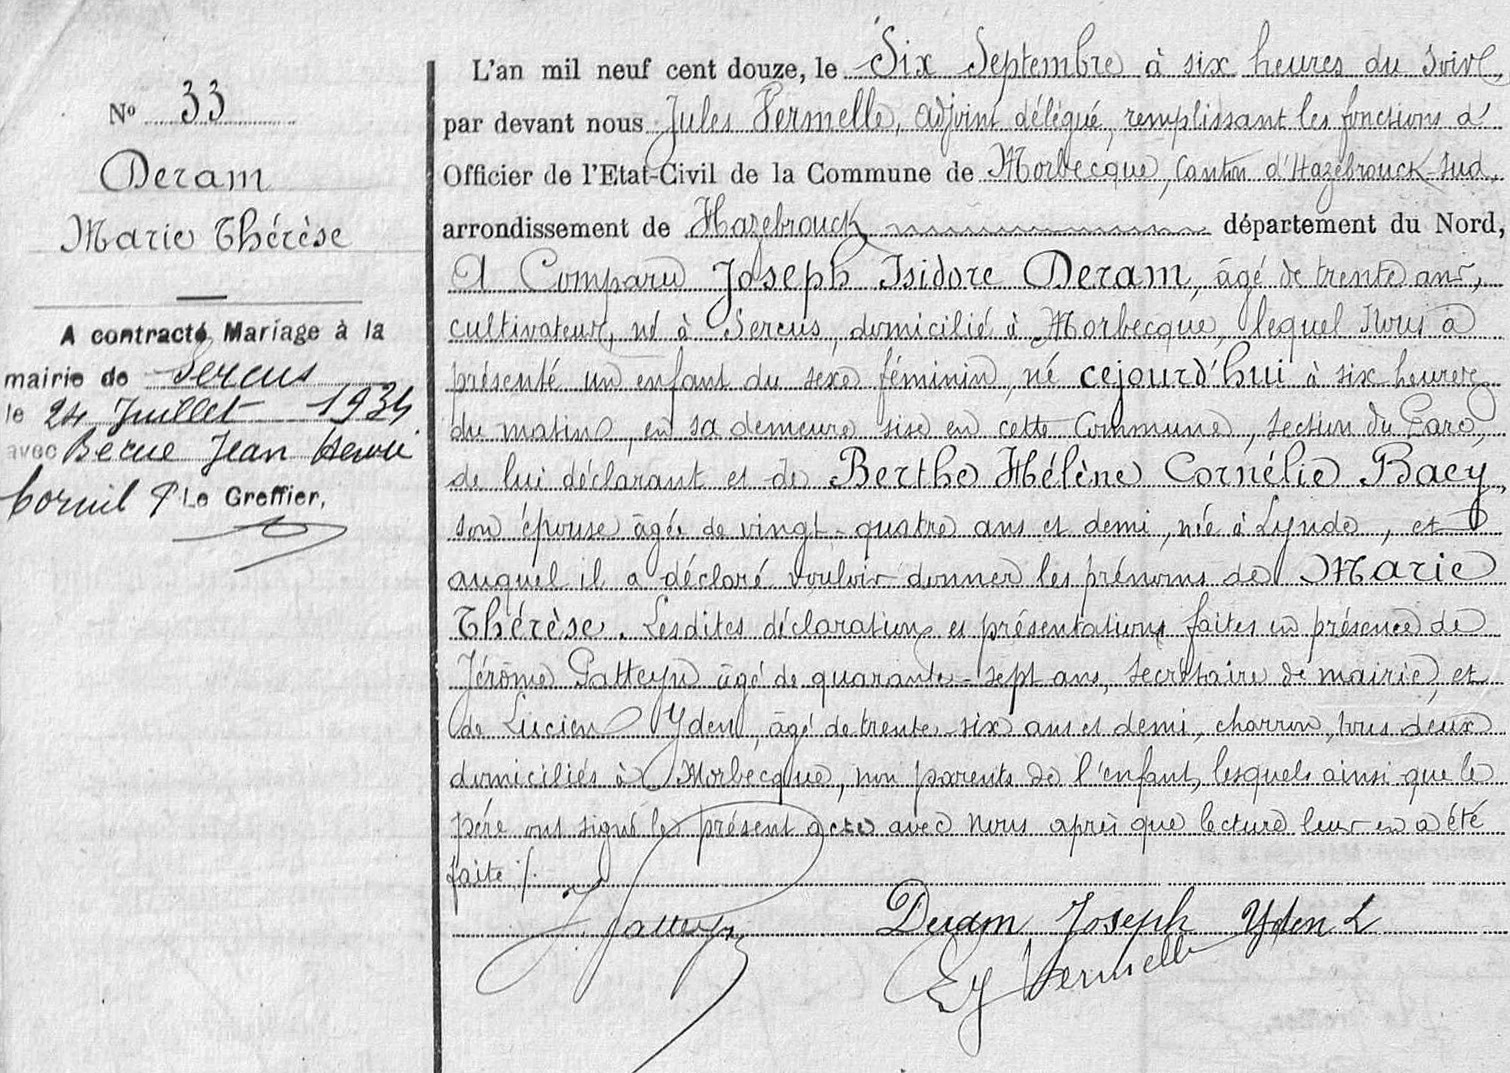 N° 33
Deram
Marie Thérèse
A contracté Mariage à la
mairie de Sercus
le 24 Juillet 1934
avec Becue Jean Henri
Cornil P. Le Greffier,
L'an mil neuf cent douze, le Six Septembre à six heures du soir,
par devant nous Jules Vermelle, adjoint délégué, remplissant les fonctions d'
Officier de l'Etat-Civil de la Commune de Morbecque, Canton d'Hazebrouck-Sud,
arrondissement de Hazebrouck département du Nord,
A Comparu Joseph Isidore Deram, âgé de trente ans,
cultivateur, né à Sercus, domicilié à Morbecque, lequel Nous a
présenté un enfant du sexe féminin, né cejourd'hui à six heures
du matin, en sa demeure sise en cette Commune, section du Parc,
de lui déclarant et de Berthe Hélène Cornélie Bacy,
son épouse âgée de vingt-quatre ans et demi, née à Lynde, et
auquel il a déclaré vouloir donner les prénoms de Marie
Thérèse. Lesdites déclaration et présentation faites en présence de
Jérôme Patteyn âgé de quarante-sept ans, secrétaire de mairie, et
de Lucien Yden, âgé de trente-six ans et demi, charron, tous deux
domiciliés à Morbecque, non parents de l'enfant, lesquels ainsi que le
père ont signé le présent acte avec Nous après que lecture leur en a été
faite ./.
J. Patteyn Deram Joseph Yden L
Vermelle